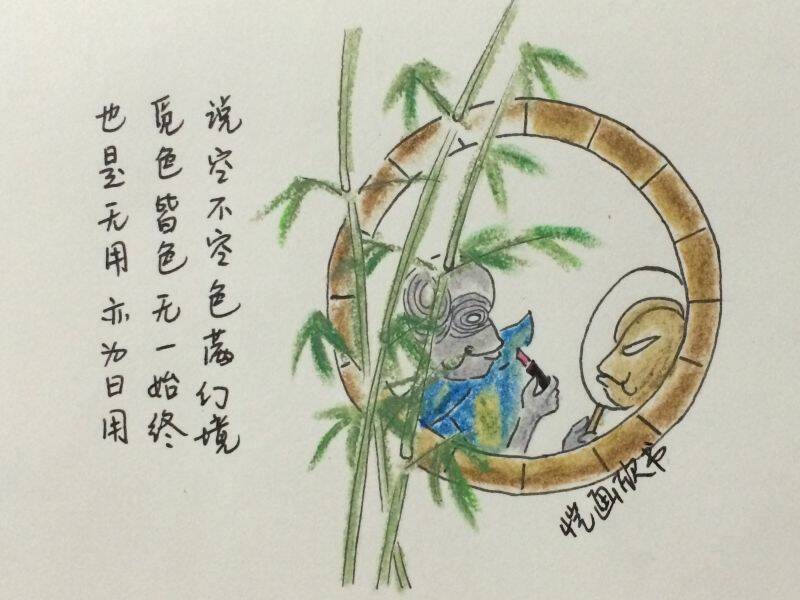 说空不空色满幻境
觅色皆色无一始终
也是无用亦为日用
恺画欣书